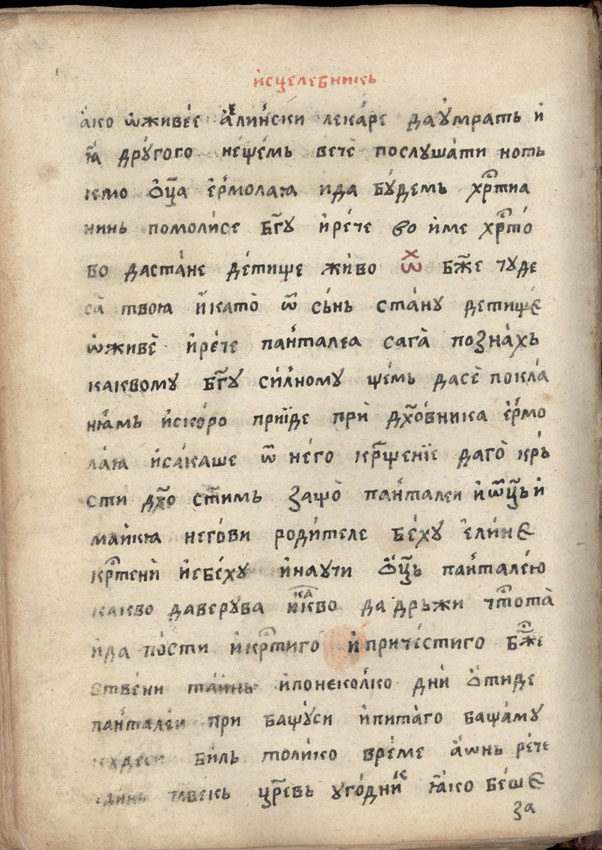 исцелебникь
ако ѡживѣе а҆елински лекаре даумрать и
ꙗ другого нещемь вече послушатиноть
кмо ѻц҃а ермолаꙗ ида будемь хрⷭ҇тиа
нинь помолисе бг҃у ирече во име хрⷭ҇то
во дастане детище живо ѿ бж҃е чуде
са твоꙗ икато ѿ сьнь стану детище
ѡживе ирече панталеа сага познахь
какᲂвому бг҃у силному щемь дасе покла
нꙗмь искоро приіде при дх҃овника ермо
лаꙗ исакаше ѿ него крⷭ҇щеніе даго крь
сти дх҃о ст҃имь защо панталеи иѡц҃ьи
маикꙗ негови родителе беху елинє
крⷭ҇тени небеху инаучи ѻц҃ь панталею
какво даверува икакво да дрьжи чⷭ҇тота
ида пости икрⷭ҇тиго ипричестиго бж҃е
ствени таинь ипонеколко дни ѻтиде
панталеи при бащуси ипитаго бащаму
кадеси биль толико време аѡнь рече
единь чл҃векь цр҃евь угодникь ꙗко бешє
за